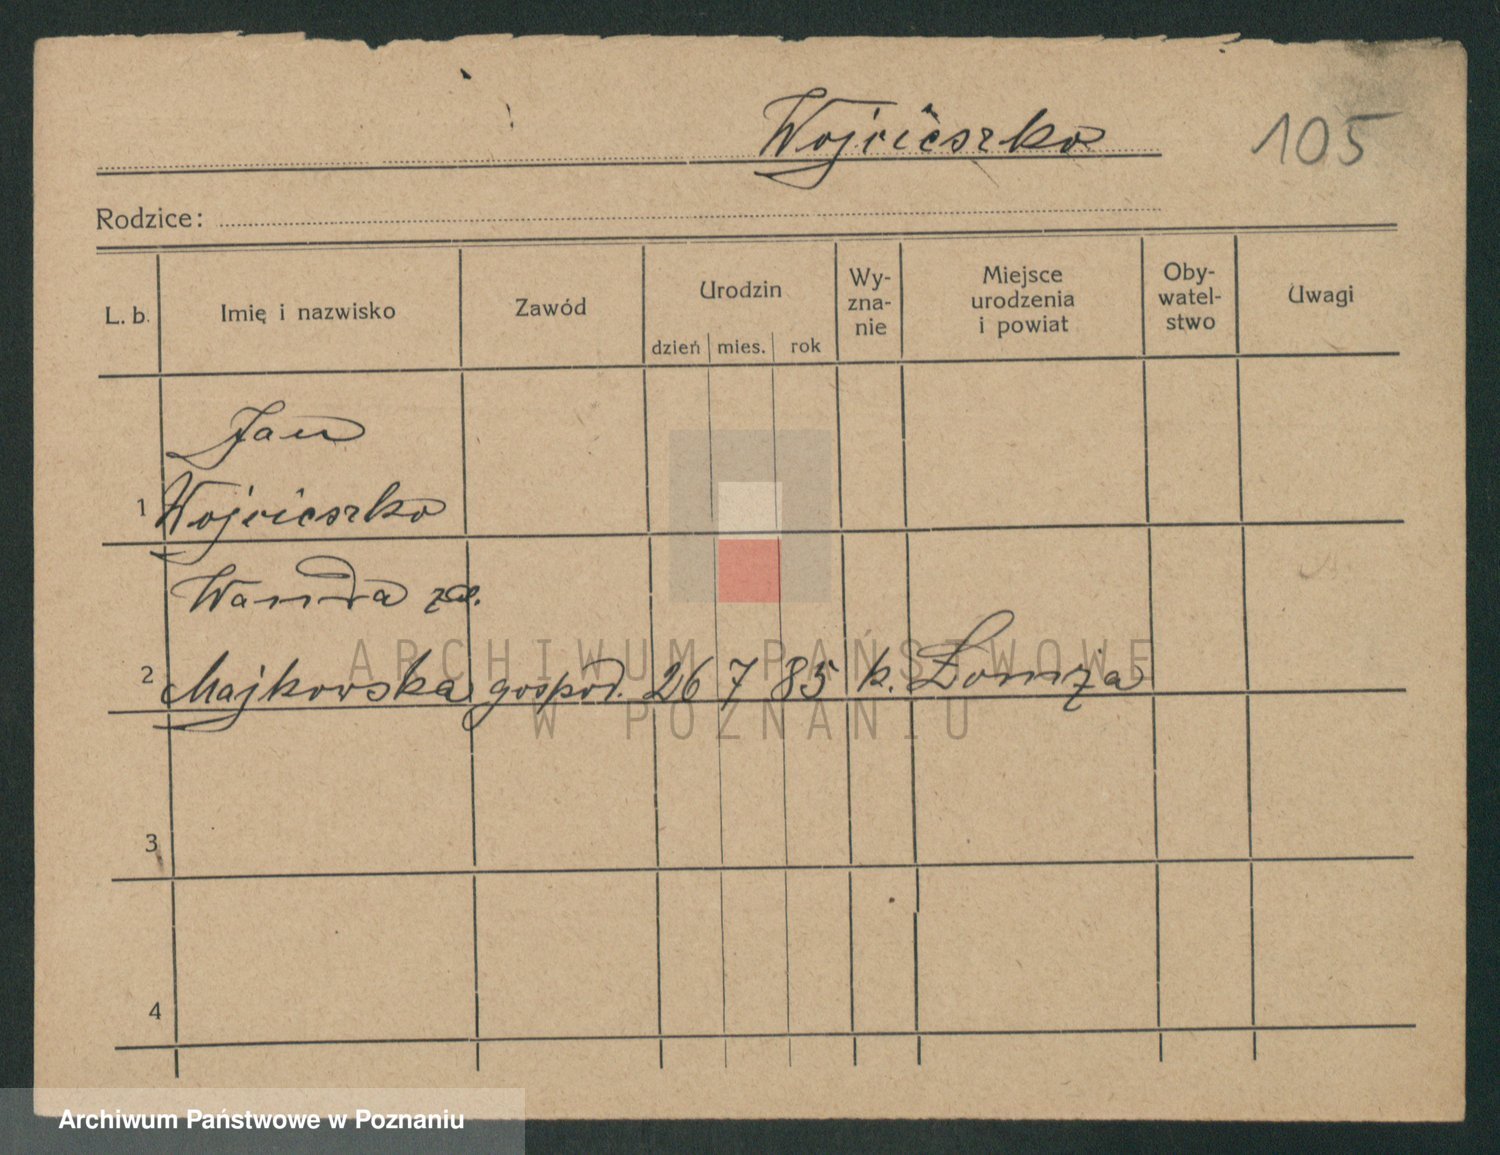 Wojcieszko
105
Rodzice:
L. b. Imię i nazwisko Zawód Urodzin dzień mies. rok Wy-zna-nie Miejsce urodzenia i powiat Oby-watel-stwo Uwagi
Jan
1 Wojcieszko
Wanda zd.
2 Majkowska gospod. 26 7 85 k. Łomża
3
4
ARCHIWUM PAŃSTWOWE
W POZNANIU
Archiwum Państwowe w Poznaniu